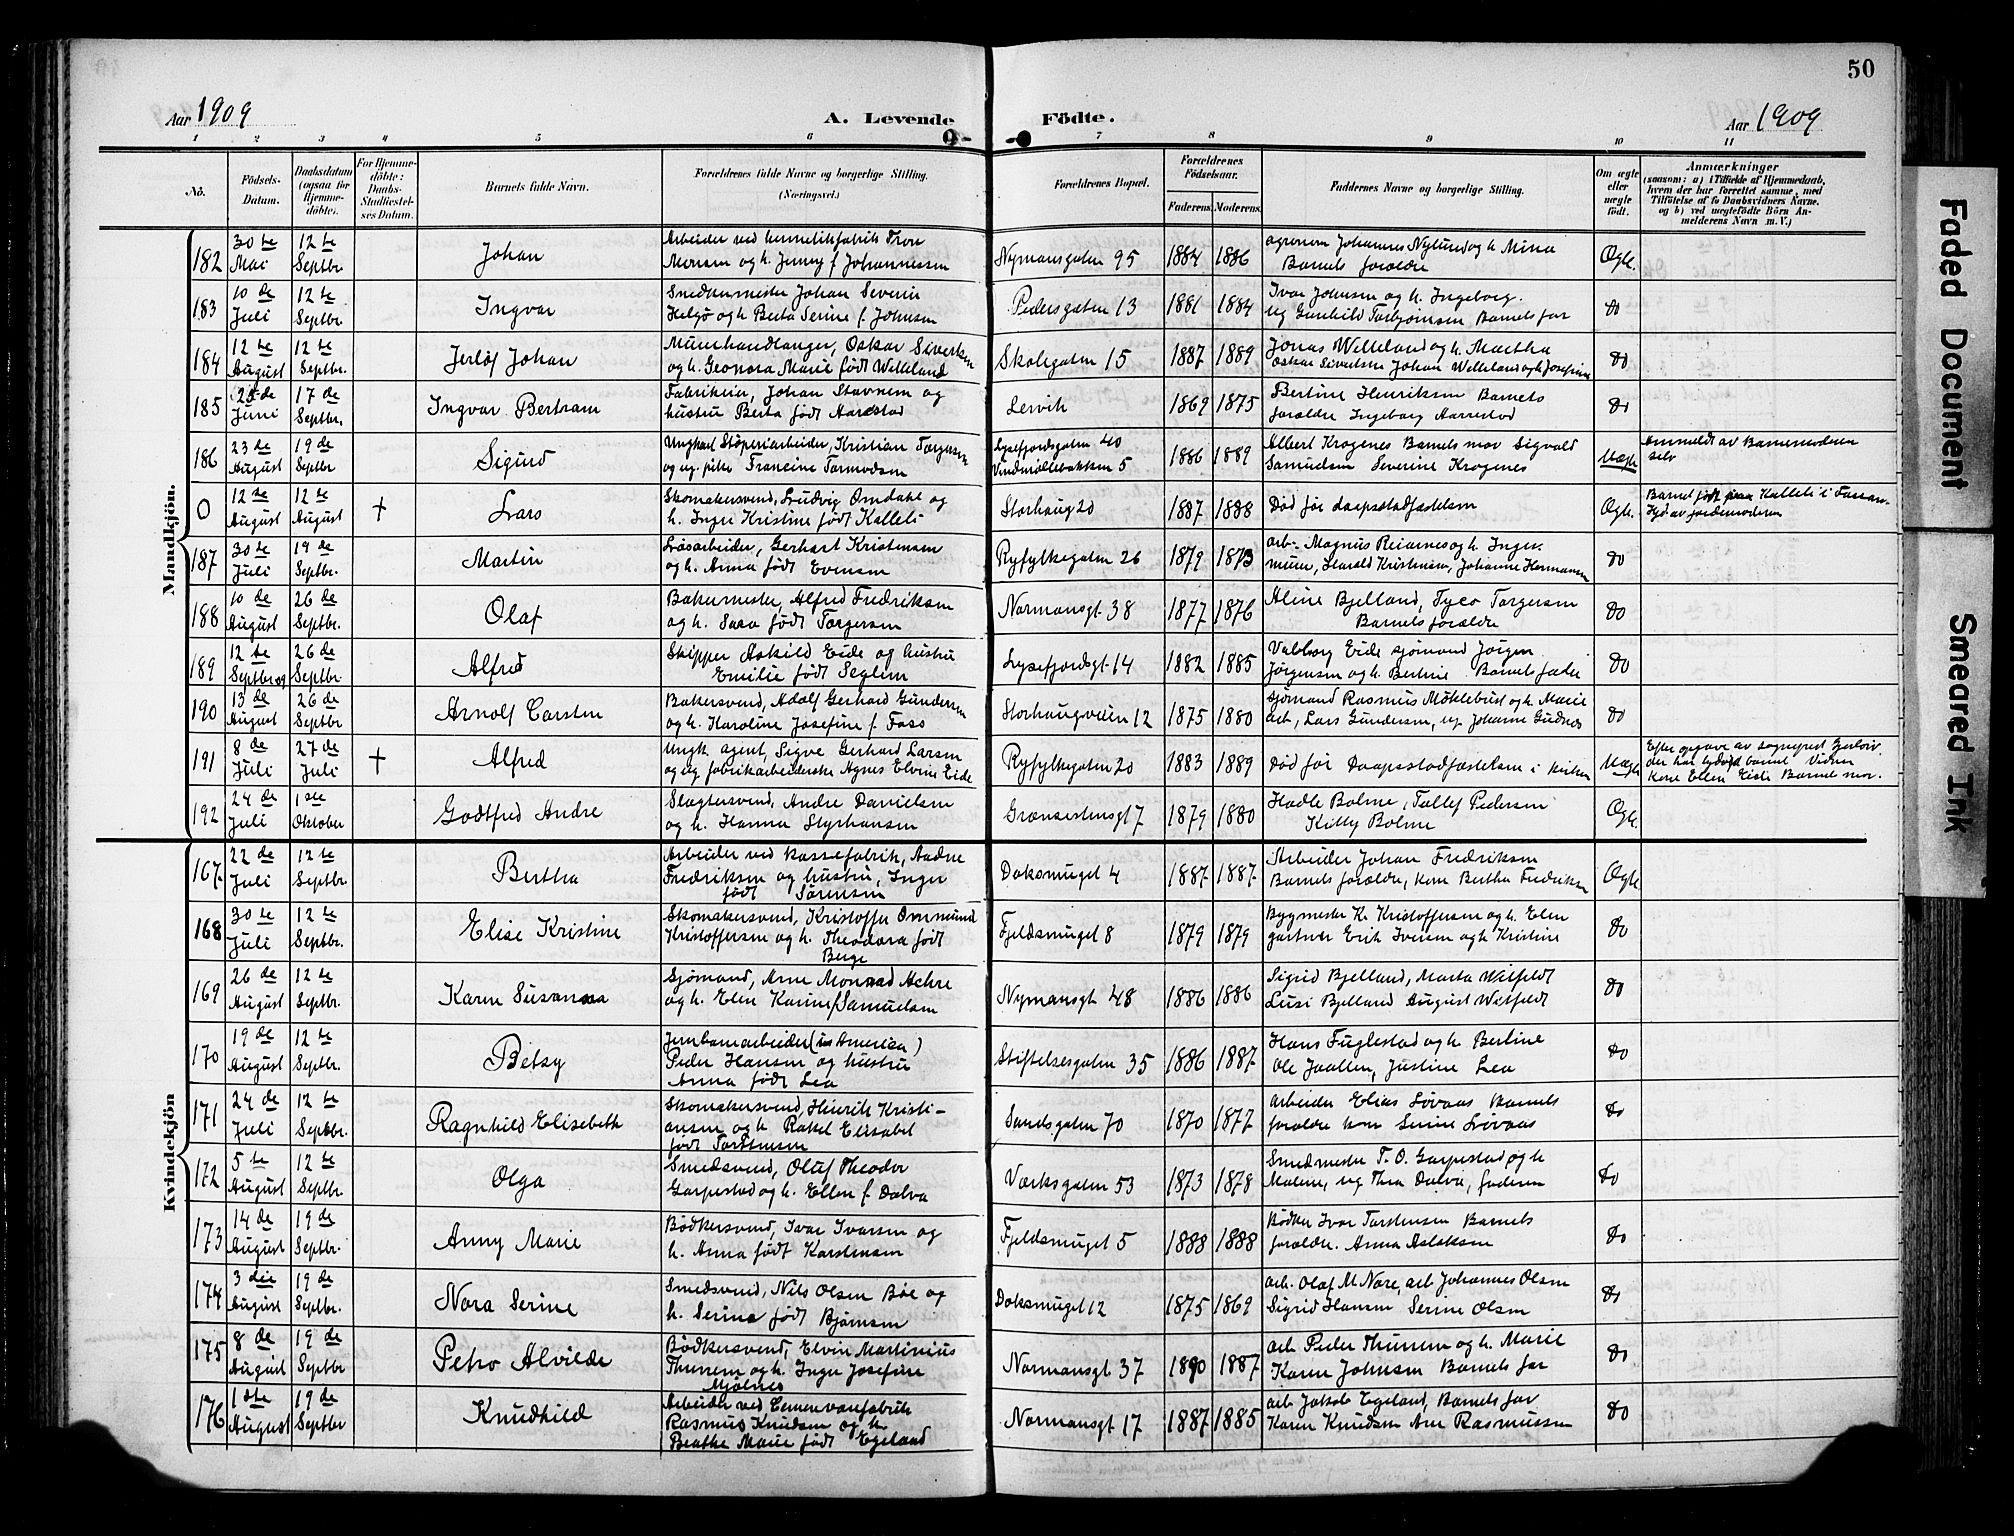 50
Aar 1909
A. Levende
Födte.
Aar 1909
1 2 3 4 5 6 7 8 9 10 11
No.
Födsels-Datum.
Daabsdatum (ogsaa for Hjemme-döbte).
For Hjemme-döbte: Daabs-Stadfæstel-ses Datum.
Barnets fulde Navn.
Forældrenes fulde Navne og borgerlige Stilling. (Næringsvei.)
Forældrenes Bopæl.
Forældrenes Födselsaar.
Faderens. Moderens.
Faddernes Navne og borgerlige Stilling.
Om ægte eller uægte födt.
Anmærkninger
(saasom: a) i Tilfælde af Hjemmedaab, hvem der har forrettet samme, med Tilföielse af to Daabsvidners Navne. og b) ved uægtefödte Börn An-melderens Navn m. V.)
Mandkjön.
182 30te Mai 12te Septbr. Johan
Arbeider ved hermetikfabrik Tron
og h. Jenny f Johannessen
Nymansgaten 95 1884 1886
agronom Johannes Nylund og h. Mina
Barnets forældre
Ægte.
183 10de Juli 12te Septbr. Ingvar
Snedkermester Johan Severin
Helgø og h Berta Serine f. Johnsen
Pedersgaten 13 1881 1884
Ivar Johnsen og h. Ingeborg.
ug Gunhild Torbjørnsen Barnets far
do
184 12te August 12te Septbr. Johan
Murerhandlanger, Oskar Sivertsen
og h. Leonora Marie født Welleland
Skolegaten 15 1887 1889
Jonas Welleland og h. Martha
Oskar Sivertsen Johan Welleland og h Josefine
do
185 Juni 17de Septbr. Ingvar Bertram
Fabrikeier, Johan Stavnem og
hustru Berta født Aarestad
Lervik 1869 1875
Bertine Henriksen Barnets
forældre Ingeborg Aarrestad
do
186 23de August 19de Septbr Sigurd
Ungkarl Støperiarbeider, Kristian Torgersen
og ug. pike Francine Tormodsen
Lysefjordsgaten 40
Vindmøllebakken 5 1886 1889
Albert Krogenes Barnets mor Sigvald
Samuelsen Severine Krogenes
Uægte
Anmeldt av Barnemoderen
selv
0 12te August 12te August + Lars
Skomakersvend, Ludvig Omdahl og
h. Inger Kristine født Kalleli
Storhaug 20 1887 1888
Død før daapsstadfæstelsen
Ægte.
Barnet født paa Kalleli i Fossan-
av jordemoderen
187 30te Juli 19de Septbr. Martin
Løsarbeider, Gerhart Kristensen
og h. Anna født Evensen
Ryfylkegaten 26 1879 1873
arb. Magnus Reiarnes og h. Inger.
murer, Harald Kristensen, Johanne Hermansen
do
188 10de August 26de Septbr. Olaf
Bakermester, Alfred Fredriksen
og h. Sara født Torgersen
Normansgt 38 1877 1876
Aline Bjelland, Tyco Torgersen
Barnets forældre
do
189 12te 26de Septbr. Alfred
Skipper Askild Eide og hustru
Emilie født Seglem
Lysefjordsgt 14 1882 1885
Valborg Eide sjømand Jørgen
Jørgensen og h. Bertine. Barnets fader
do
190 13de August 26de Septbr Arnolf Carsten
Bakersvend, Adolf Gerhard Gundersen
og h. Karoline Josefine f. Foss
Storhaugveien 12 1875 1880
sjømand Rasmus Møklebust og h. Marie
arb, Lars Gundersen, ug. Johanne
do
191 8de Juli 27de Juli + Alfred
Ungk. agent, Sigve Gerhard Larsen
og ug. fabrikarbeiderske Agnes Elvine Eide
Ryfylkegaten 20 1883 1889
Død før Daapsstadfæstelsen i kirken
Uægte
Efter opgave av sogneprest
der har hjdøpt barnet. Vidner
Kone Ellen Eide Barnets mor.
192 24de Juli 1ste Oktober Godtfred Andre
Slagtersvend, Andre Danielsen
og h. Hanna Styrhansen
Grænsestensgt 7 1879 1880
Hadle Bolme, Tollef Pedersen
Kitty Bolme
Ægte.
Kvindekjön
167 22de Juli 12te Septbr. Bertha
Arbeider ved kassefabrik, Aadne
Fredriksen og hustru, Inger
født Sørensen
Doksmuget 4 1887 1887
Arbeider Johan Fredriksen
Barnets forældre, kone Bertha Fredriksen
Ægte
168 30te Juli 12te Septbr. Elise Kristine
Skomakersvend, Kristoffer Ommund
Kristoffersen og h. Theodora født
Berge
Fjeldsmuget 8 1879 1879
Bygmester K. Kristoffersen og h. Elen
gartner Erik Iversen og h Kristine
do
169 26de August 12te Septbr. Karen Susanna
Sjømand, Arne Monrad Achre
og h. Elen Karine/Samuelsen
Nymansgt 48 1886 1886
Sigrid Bjelland, Marta Witfeldt
Lusi Bjelland August Witfeldt
do
170 19de August 12te Septbr. Betsy
Jernbanarbeider (in America)
Peder Hansen og hustru
Anna født Lea
Stiftelsesgaten 35 1886 1887
Hans Fuglestad og h Bertine
Ole Jaatten, Justine Lea
do
171 24de Juli 12te Septbr. Ragnhild Elisebeth
Skomakersvend, Hinrik Kristi-
ansen og h Rakel Elisabet
født Torstensen
Sandsgaten 70 1870 1877
arbeider Elias Løvaas Barnets
forældre kone Serine Løvaas
do
172 5te August 12te Septbr. Olga
Smedsvend, Oluf Theodor
Garpestad og h. Ellen f. Dalva
Verksgaten 53 1873 1878
Smedmester T. O. Garpestad og h
Malene, ug Thea Dalva, faderen
do
173 14de August 19de Septbr. Anny Marie
Bødkersvend, Ivar Ivarsen og
h. Anna født Karstensen
Fjeldsmuget 5 1888 1888
Bødker Ivar Torstensen Barnets
forældre. Anna Aslaksen
do
174 3die August 19de Septbr. Nora Serine
Smedsvend, Nils Olsen Bøe og
h. Serina født Bjørnsen
Doksmuget 12 1875 1869
arb. Olaf M. Nore, arb Johannes Olsen
Sigrid Hansen Serine Olsen
do
175 8de August 19de Septbr Petro Alvilde
Bødkersvend, Elvin Martinius
Thunem og h. Inger Josefine
Mjølnes
Normansgt 37 1890 1887
arb Peder Thunem og h. Marie
Karen Johnsen Barnets far
do
176 1ste August 19de Septbr Knudhild
Arbeider ved Consenvesfabrik
Rasmus Knudsen og h.
Berthe Marie født Egeland
Normansgt 17 1887 1885
arb Jakob Egeland, Barnets far
Karen Knudsen Ane Rasmussen
do
Faded Document
Smeared Ink